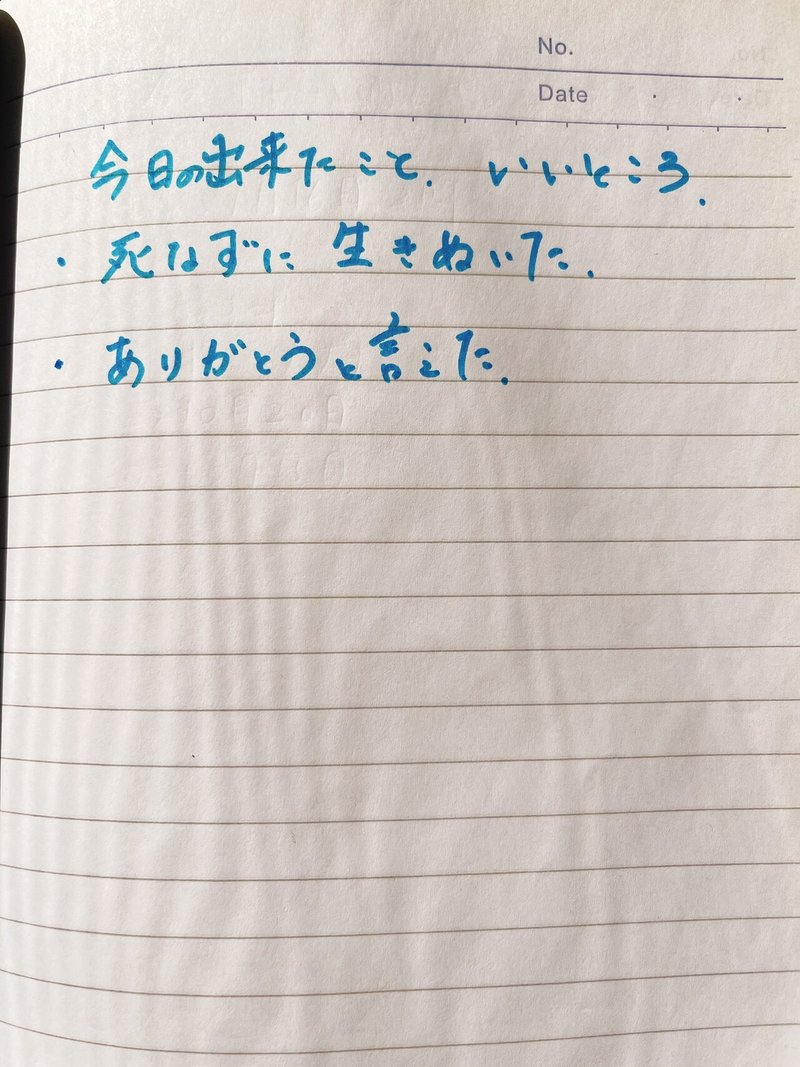 No.
Date
今日の出来たこと. いいところ.
・死なずに生きぬいた.
・ありがとうと言えた.